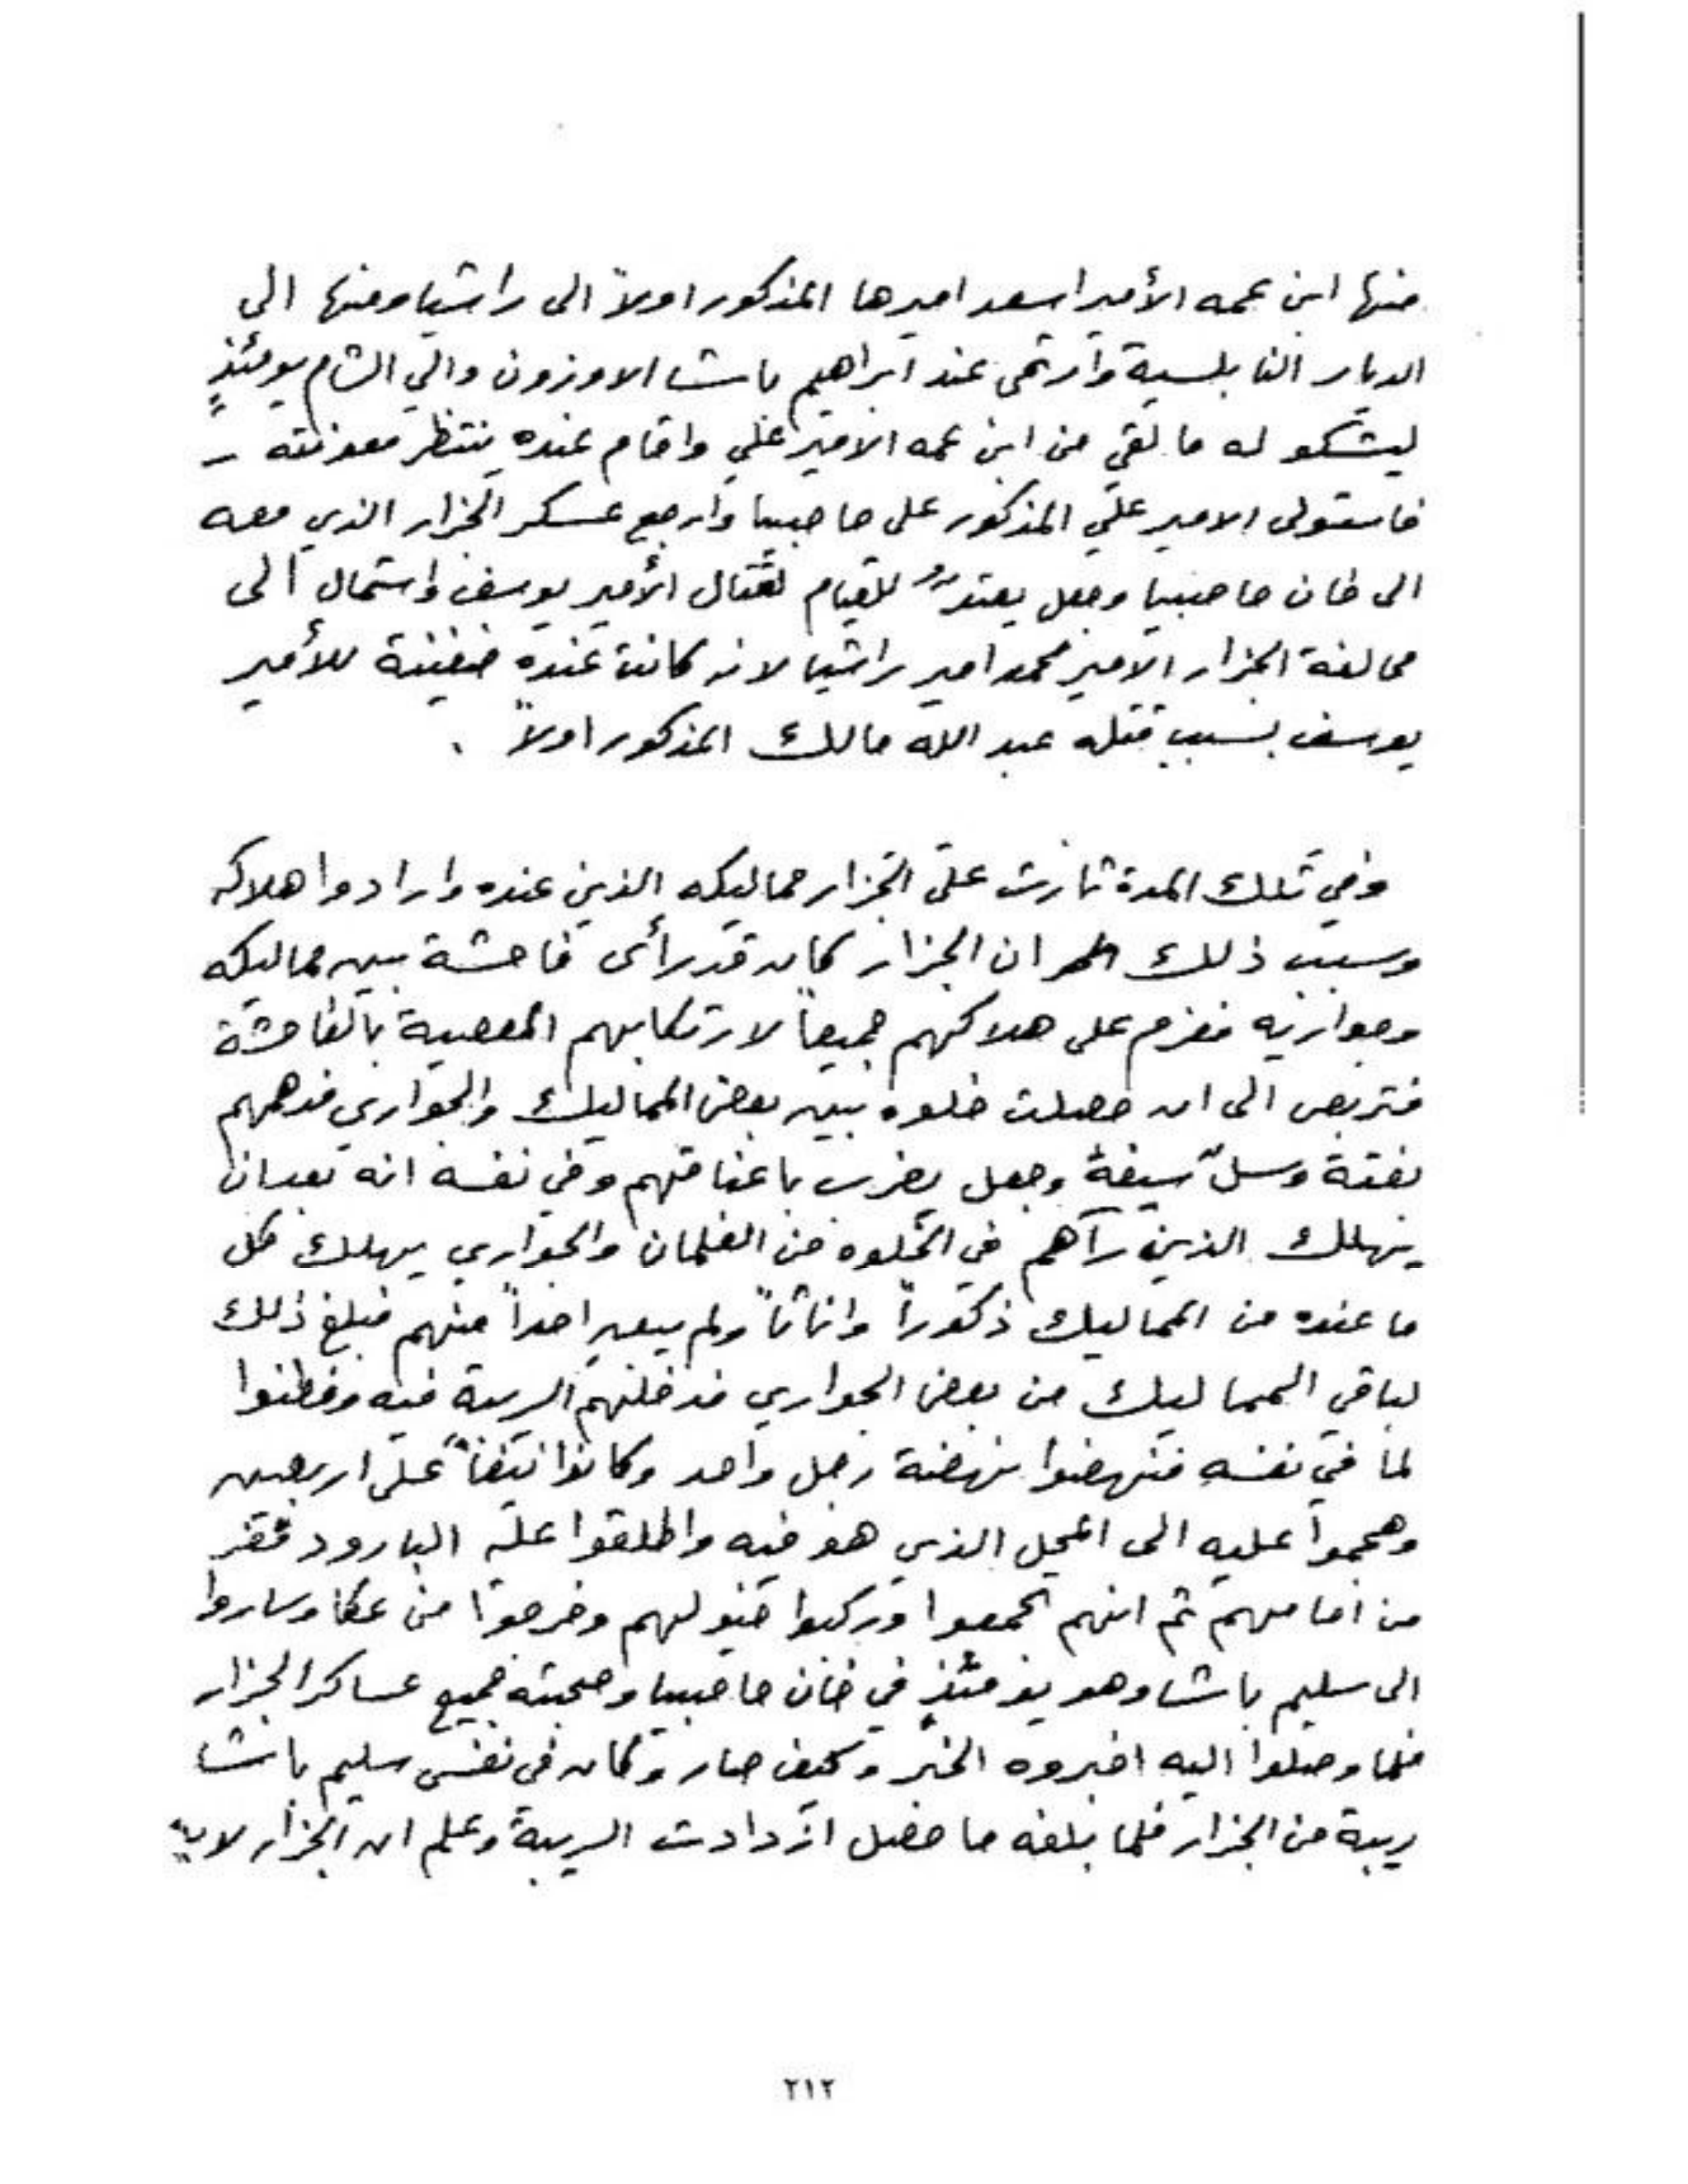 منها ابن عمه الأمير اسعد اميرها المذكور اولاً الى راشيا ومنها الى
الديار النابلسية وارتمى عند ابراهيم باشا الاوزون والي الشام يومئذٍ
ليشكو له ما لقي من ابن عمه الامير علي واقام عنده ينتظر معونته
فاستولى الامير علي المذكور على حاصبيا وارجع عسكر الجزار الذي معه
الى خان حاصبيا وجعل للقيام لقتال الأمير يوسف واستمال الى
محالفة الجزار الامير محمد امير راشيا لانه كانت عنده ضغينة للأمير
يوسف بسبب قتله عبد الله مالك المذكور اولاً .
وفي تلك المدة ثارت على الجزار مماليكه الذين عنده وارادوا هلاكه
وسبب ذلك ان الجزار كان قد رأى فاحشة بين مماليكه
وجواريه فعزم على هلاكهم جميعاً لارتكابهم المعصية بالفاحشة
فتربص الى ان حصلت خلوه بين بعض المماليك والجواري فدهمهم
بغتة وسلّ سيفه وجعل يضرب باعناقهم وفي نفسه انه بعد ان
يهلك الذين رآهم في الخلوه من الغلمان والجواري يهلك كل
ما عنده من المماليك ذكوراً واناثاً ولم احداً منهم فبلغ ذلك
لباقي المماليك من بعض الجواري فدخلتهم الريبة فيه وفطنوا
لما في نفسه فنهضوا نهضة رجل واحد وكانوا نيفاً على اربعين
وهجموا عليه الى المحل الذي هو فيه واطلقوا عليه البارود ففر
من امامهم ثم انهم تجمعوا وركبوا خيولهم وخرجوا من عكا وساروا
الى سليم باشا وهو يومئذٍ في خان حاصبيا وصحبته جميع عساكر الجزار
فلما وصلوا اليه اخبروه الخبر وكيف صار وكان في نفس سليم باشا
ريبة من الجزار فلما بلغه ما حصل ازدادت الريبة وعلم ان الجزار لا
٢١٢